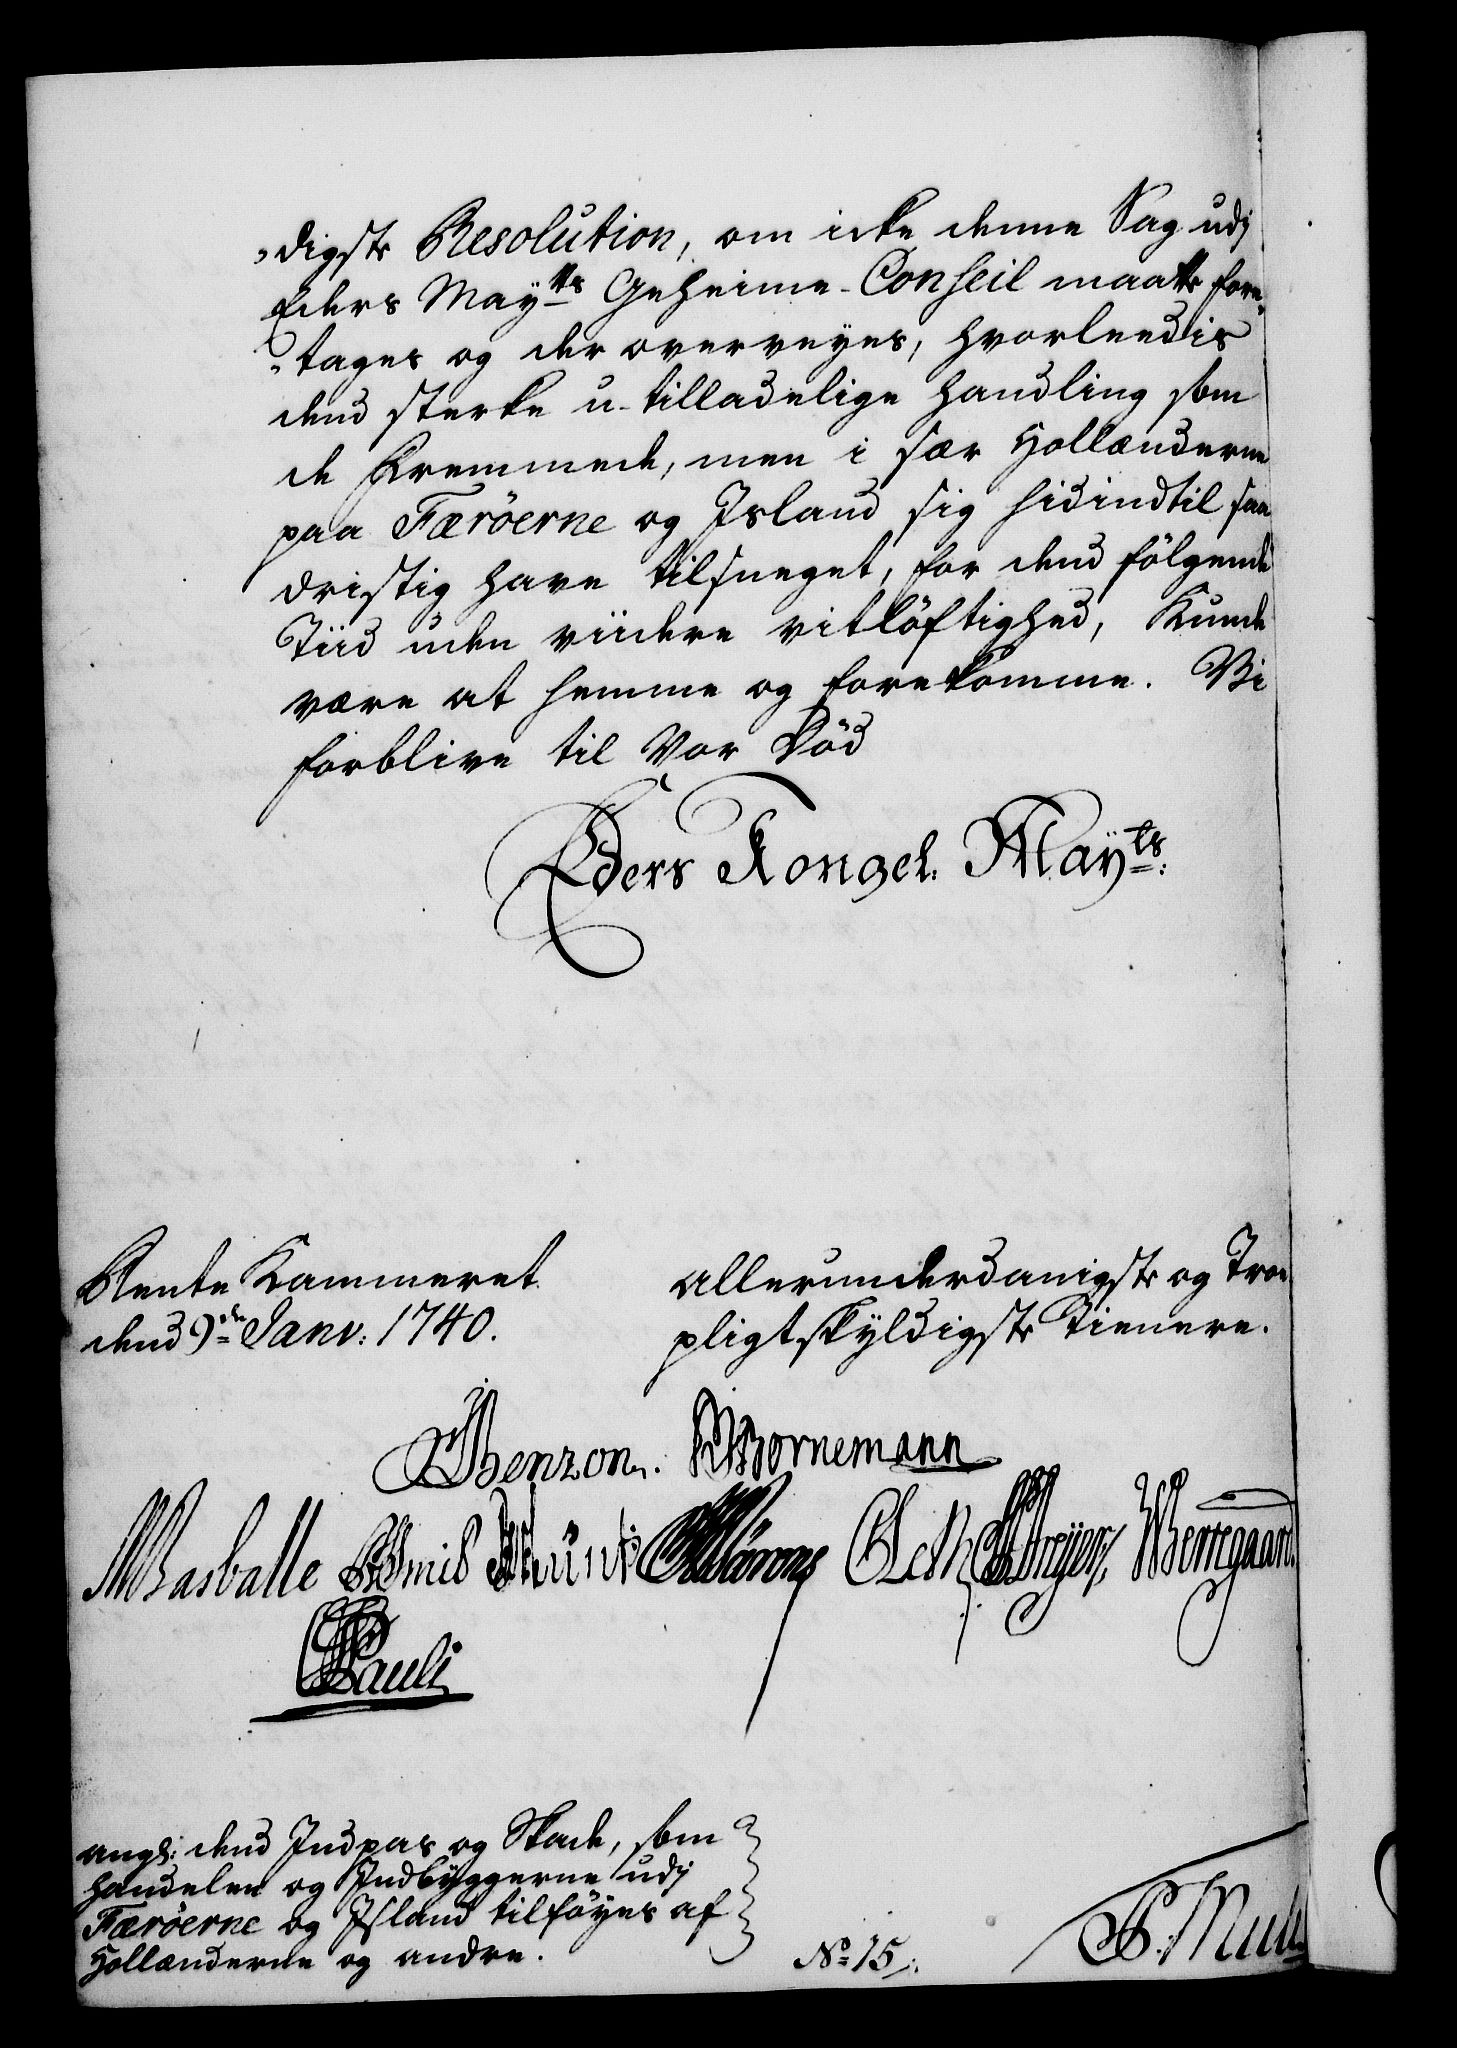 „digste Resolution, om icke denne Sag udj
Eders May:tts Geheime-Conseil maatte fore„
„tages og der overveyes, hvorleedis
dend sterke u-tilladelige Handling som
de Fremmede, men i sær Hollænderne
paa Færöerne og Jsland sig hidindtil saa
dristig have tilsneget, for dend følgende
Tiid uden viidere vitløftighed, Kunde
være at hemme og forekomme. Vi
forblive til Vor Død
Eders Kongel. May:ts:
Rente Kammeret
dend 9de Janv: 1740.
allerunderdanigste og Troe
pligtskyldigste Tienere.
Benzon. Bornemann
Basballe
Pauli
angl: dend Indpas og Skade, som
Handelen og Indbyggerne udj
Færöerne og Jsland tilføyes af
Hollænderne og andre.
No 15.